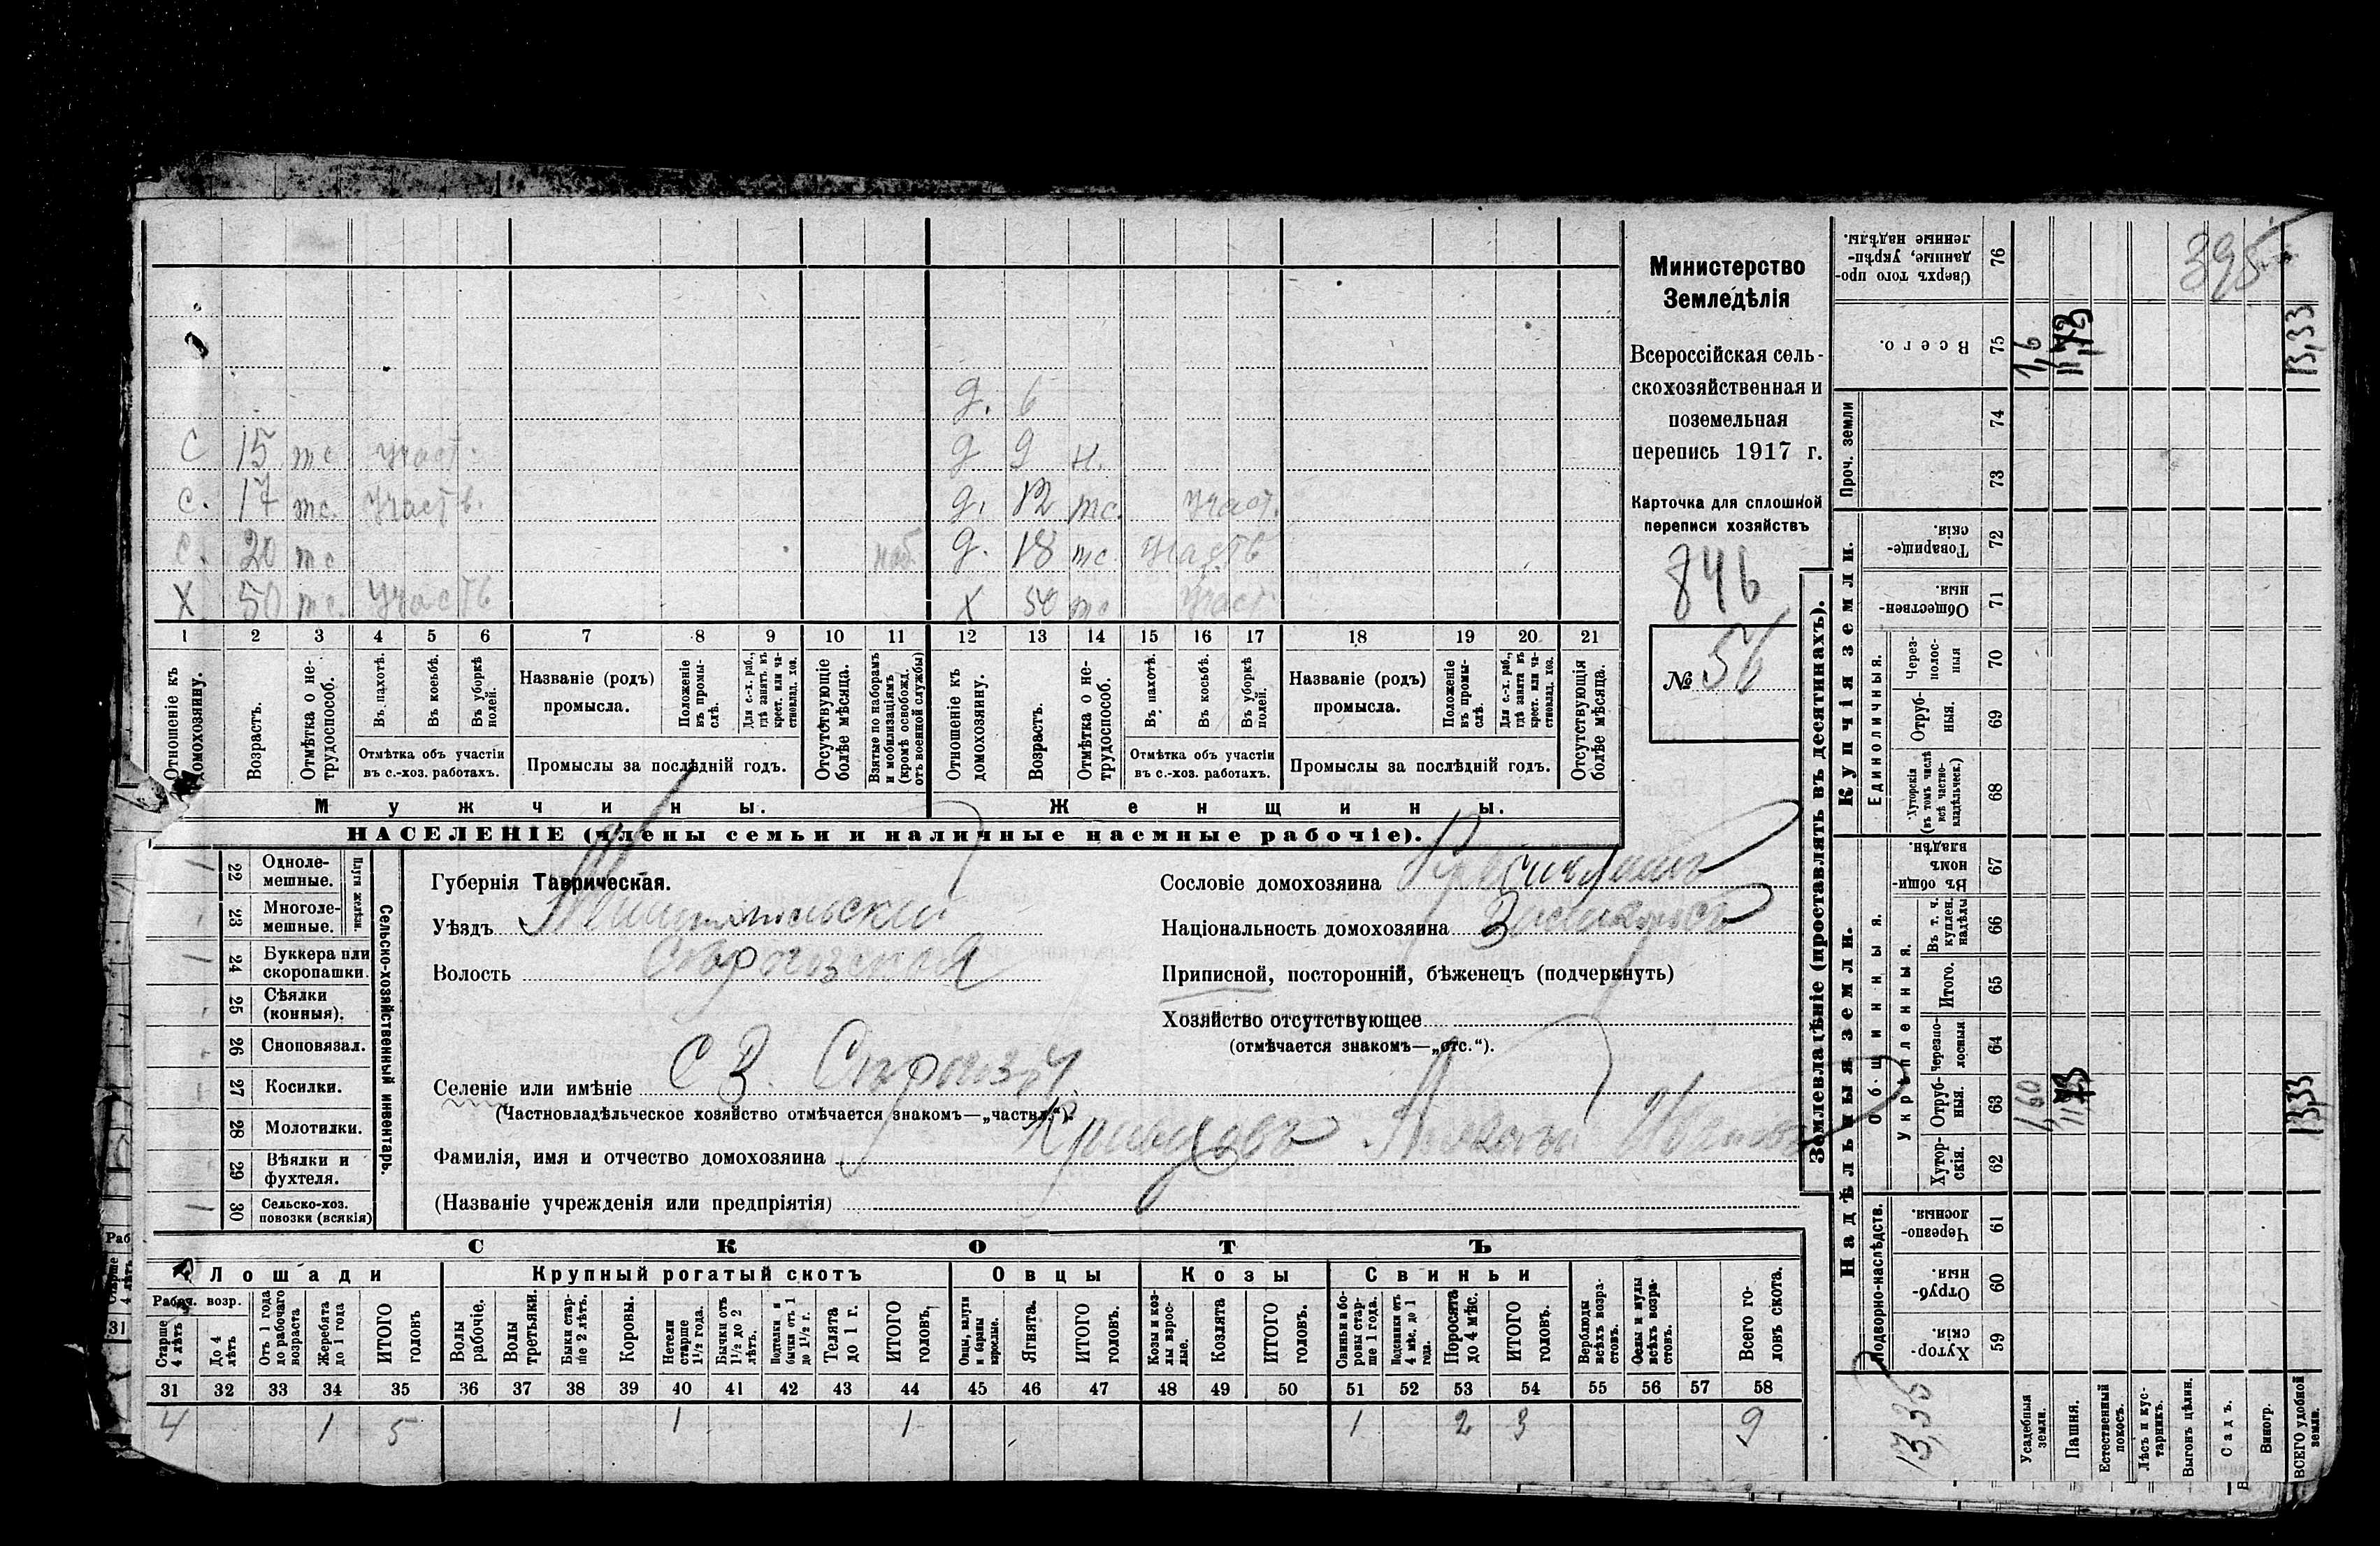 Министерство
Земледѣлія
Всероссійская сель-
скохозяйственная и
поземельная
перепись 1917 г.
Карточка для сплошной
переписи хозяйствъ
846
№ 56
д. 6
С 15 тс участ. д 9 н.
с. 17 тс. участв. д. 12 тс. участ.
с. 20 тс моб. д. 18 тс. участв
Х 50 тс. участв х 50 тс участ
1 2 3 4 5 6 7 8 9 10 11 12 13 14 15 16 17 18 19 20 21
Отношеніе къ домохозяину.
Возрастъ.
Отмѣтка о не-трудоспособ.
Въ пахотѣ.
Въ косьбѣ.
Въ уборкѣ полей.
Отмѣтка объ участіи
въ с.-хоз. работахъ.
Названіе (родъ)
промысла.
Положеніе въ промы-слѣ.
Для с.-х. раб., гдѣ занятъ въ крест. или ча-стновлад. хоз.
Промыслы за послѣдній годъ.
Отсутствующіе болѣе мѣсяца.
Взятые по наборамъ и мобилизаціямъ (кромѣ освобожд. отъ военной службы)
Отношеніе къ домохозяину.
Возрастъ.
Отмѣтка о не-трудоспособ.
Въ пахотѣ.
Въ косьбѣ.
Въ уборкѣ полей.
Отмѣтка объ участіи
въ с.-хоз. работахъ.
Названіе (родъ)
промысла.
Положеніе въ промы-слѣ.
Для с.-х. раб., гдѣ занята въ крест. или ча-стновлад. хоз.
Промыслы за послѣдній годъ.
Отсутствующія болѣе мѣсяца.
Мужчины. Женщины.
НАСЕЛЕНІЕ (члены семьи и наличные наемные рабочіе).
Сельско-хозяйственный инвентарь.
Плуги желѣзн.
22 Одноле-мешные.
23 Многоле-мешные.
24 Буккера или скоропашки.
25 Сѣялки (конныя).
26 Сноповязал.
27 Косилки.
28 Молотилки.
29 Вѣялки и фухтеля.
30 Сельско-хоз. повозки (всякія)
Губернія Таврическая.
Уѣздъ Мелитопольскій
Волость
Селеніе или имѣніе
(Частновладѣльческое хозяйство отмѣчается знакомъ—„частн.“).
Фамилія, имя и отчество домохозяина
(Названіе учрежденія или предпріятія)
Сословіе домохозяина
Національность домохозяина
Приписной, посторонній, бѣженецъ (подчеркнуть)
Хозяйство отсутствующее
(отмѣчается знакомъ—„отс.“).
СКОТЪ
Лошади Крупный рогатый скотъ Овцы Козы Свиньи
Рабоч. возр.
Старше 4 лѣтъ
До 4 лѣтъ
Отъ 1 года до рабочаго возраста
Жеребята до 1 года
ИТОГО головъ
Волы рабочіе.
Волы третьяки.
Быки стар-ше 2 лѣтъ.
Коровы.
Нетели старше 1½ года.
Бычки отъ 1½ до 2 лѣтъ.
Подтелки и бычки отъ 1 до 1½ г.
Телята до 1 г.
ИТОГО головъ,
Овцы, валухи и бараны взрослые.
Ягнята.
ИТОГО головъ.
Козы и коз-лы взрос-лые.
Козлята
ИТОГО головъ.
Свиньи и бо-ровы стар-ше 1 года.
Подсвинки отъ 4 мѣс. до 1 года.
Поросята до 4 мѣс.
ИТОГО головъ.
Верблюды всѣхъ возра-стовъ.
Ослы и мулы всѣхъ возра-стовъ.
Всего го-ловъ скота.
31 32 33 34 35 36 37 38 39 40 41 42 43 44 45 46 47 48 49 50 51 52 53 54 55 56 57 58
4 1 5 1 1 1 2 3 9
Землевладѣніе (проставлять въ десятинахъ).
Надѣльныя земли. Купчія земли.
Проч. земли
Подворно-наслѣдств.
Общинныя.
Укрѣпленныя.
Единоличныя.
59 Хутор-скія.
60 Отруб-ныя.
61 Черезпо-лосныя.
62 Хутор-скія.
63 Отруб-ныя.
64 Черезпо-лосныя
65 Итого.
66 Въ т. ч. куплен. надѣлы
67 Въ общин-номъ владѣн.
68 Хуторскія (въ томъ числѣ всѣ частно-владѣльческ.)
69 Отруб-ныя.
70 Через-полос-ныя
71 Обществен-ныя.
72 Товарище-скія.
73
74
75 Всего.
76 Сверхъ того про-данные, укрѣп-ленные надѣлы.
Усадебныя земли.
Пашня.
Естественный покосъ.
Лѣсъ и кус-тарникъ.
Выгонъ цѣлин.
Садъ.
Виногр.
ВСЕГО удобной земли.
1,60
13,33
1,6
11,73
13,33
395